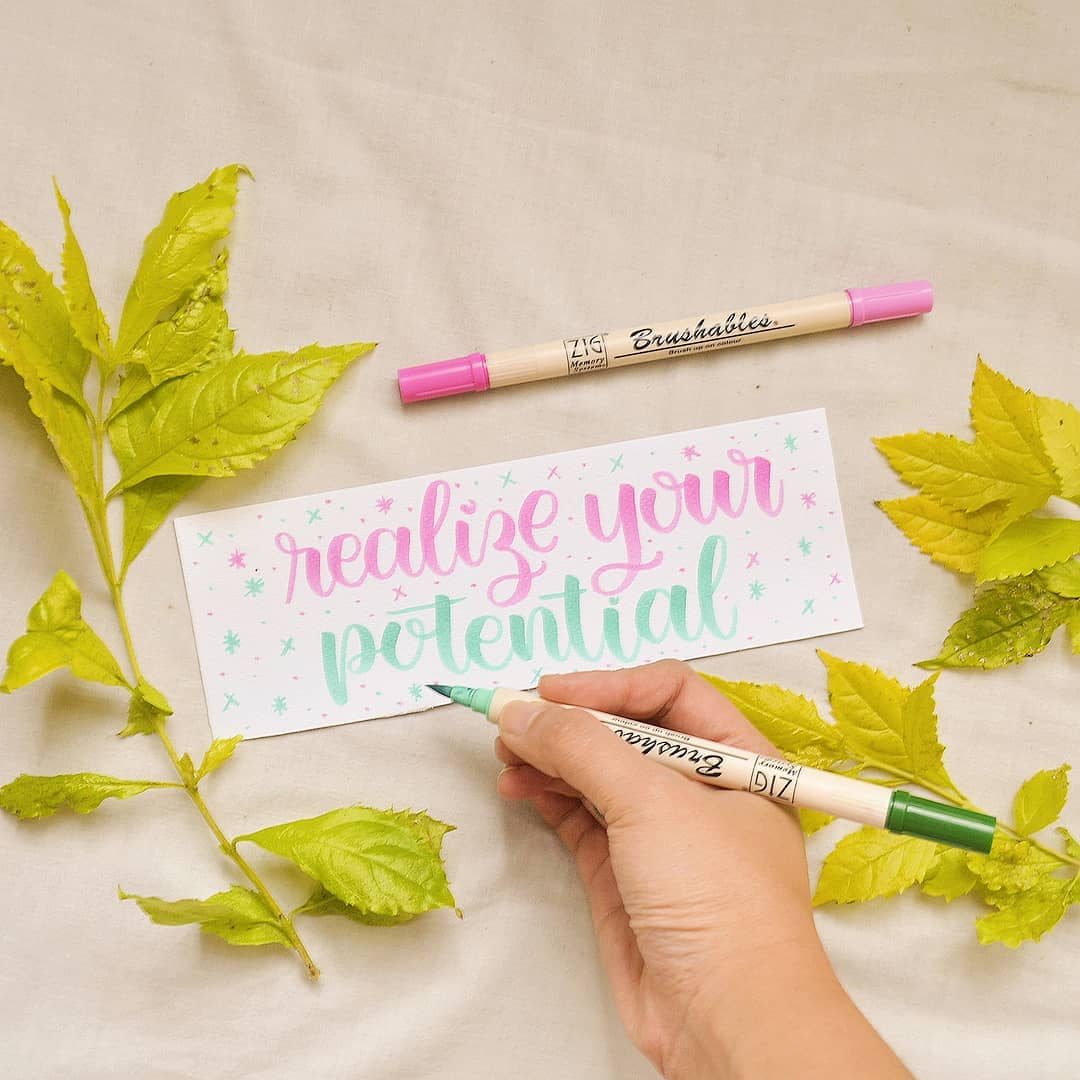 ZIG
Memory
Systems
Brushables®
Brush up on colour
realize your
potential
ZIG
Memory
System
Brusha
Brush up on colour